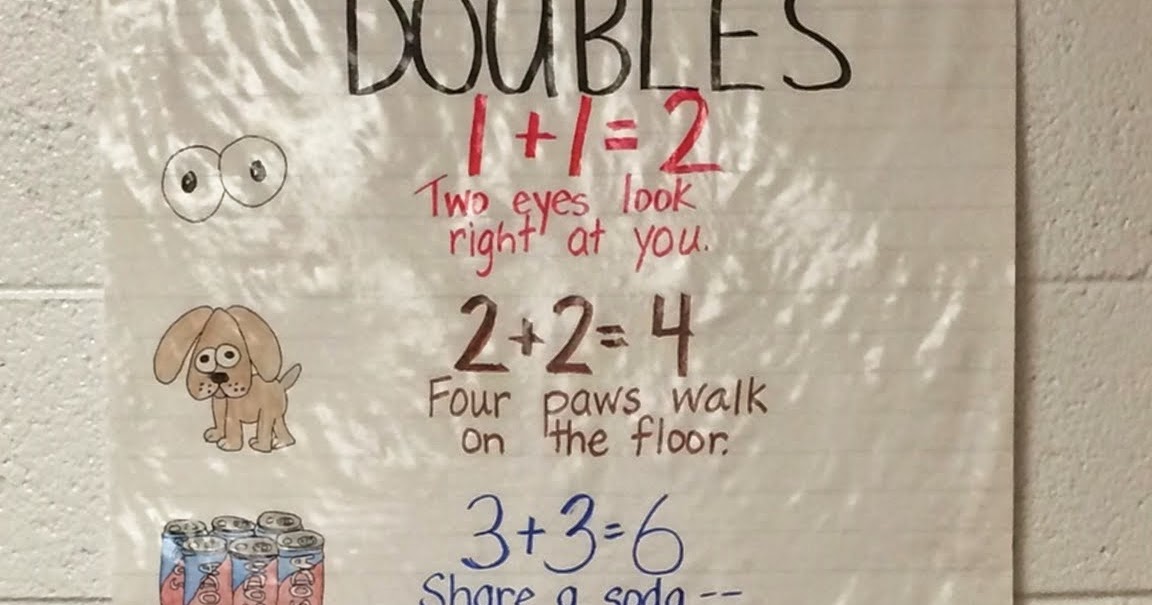 DOUBLES
1+1=2
Two eyes look
right at you.
2+2=4
Four paws walk
on the floor.
3+3=6
Share a soda--
SODA SODA SODA